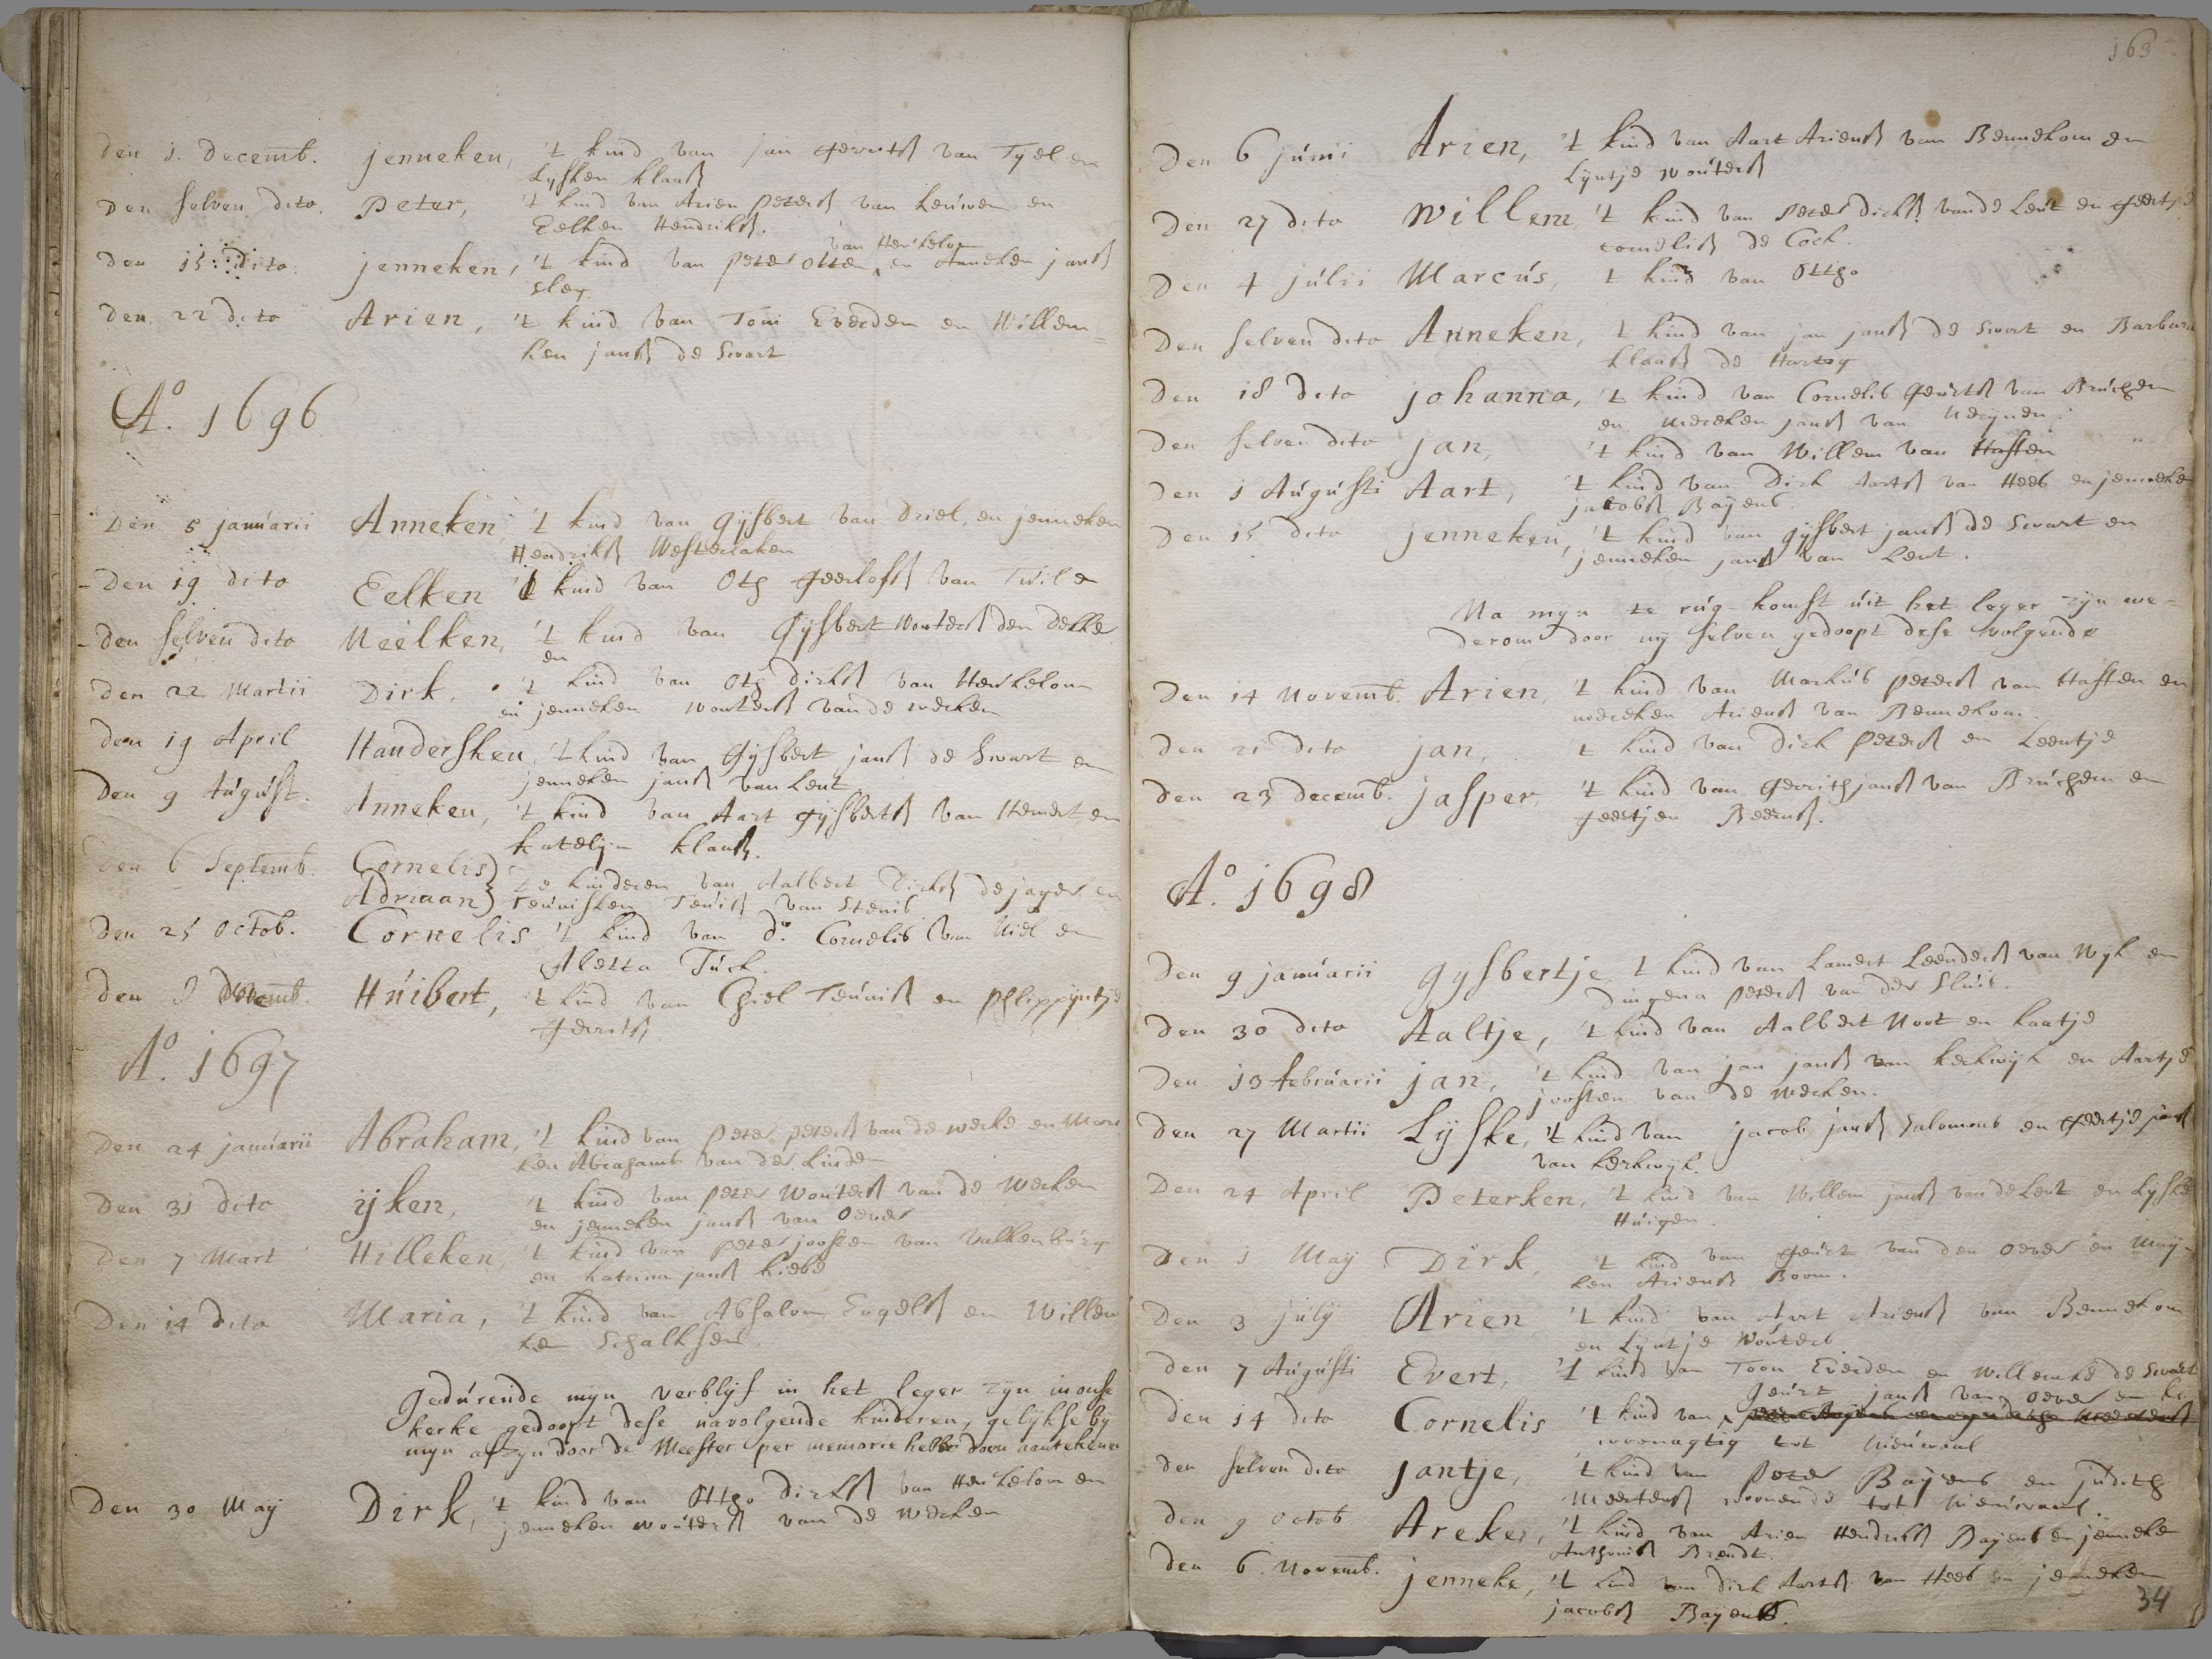 den 1. decemb. jenneken, 't kind van jan gerritsz van Tyel en
Lysken klaasz
den selven dito. Peter, 't kind van Arien petersz van Leuwen en
Eelken Hendriksz.
den 15 dito jenneken, 't kind van peter otten van Herkelom en Anneken jansz
den 22 dito Arien, 't kind van Toni Everden en Willem=
ken jansz de Swart
Aº. 1696
Den 5 januarii Anneken 't kind van gysbert van driel, en jenneken
Hendriksz Westerlaken
Den 19 dito Eelken 't kind van Oth geerlofsz van Tuil en
den selven dito Neelken, 't kind van Gysbert Woutersz den dekke
en
den 22 Martii Dirk, 't kind van Oth dirksz van Herkelom
en jenneken woutersz van de werken
den 19 April Handersken, 't kind van Gysbert jansz de Swart en
jenneken jansz van Lent
den 9 August. Anneken, 't kind van Aart gysbertsz van Hemert en
katelyn klaasz.
den 6 Septemb. Cornelis
Adriaan} de kinderen van Aalbert Dirksz de jager en
Teunisken Teunisz van Stenis
den 25 Octob. Cornelis 't kind van ds. Cornelis van Niel en
Aletta Tuck.
den Huibert, 't kind van Chiel Teunisz en phlippyntje
gerritsz
Aº. 1697
Den 24 januarii Abraham, 't kind van peter petersz van de werke en Mari
ken Abrahams van der Linden
Den 31 dito ijken, 't kind van peter Woutersz van de Werken
en jenneken jansz van Oever
Den 7 Mart Hilleken, 't kind van peter joosten van Valkenburg
en katrina jansz
Den 14 dito Maria, 't kind van Absalom Engelsz en Willem
ke Schalksen.
Gedurende myn verblyf in het leger zyn in onse
kerke gedoopt dese navolgende kinderen, gelyk se by
myn afzyn door de Meester per memorie hebbe doen aantekenen
Den 30 May Dirk, 't kind van Ottho Dirksz van Herkelom en
jenneken woutersz van de werken
163
Den 6 junii Arien, 't kind van Aart Ariensz van Bennekom en
Lyntje woutersz
Den 27 dito Willem 't kind van peter dirksz vande Lent en geertje
cornelisz de Cock.
Den 4 julii Marcus, 't kind van Ottho
Den selven dito Anneken, 't kind van jan jansz de Swart en Barbara
klaasz de Hartog
Den 18 dito johanna, 't kind van Cornelis geurtsz van Bruchem
en Merieken jansz van Nerynen.
den selven dito jan, 't kind van Willem van Haften
den 1 Augusti Aart, 't kind van Dirk Aartsz van Hees en jenneke
jacobsz Bayens
den 15 dito jenneken, 't kind van gysbert jansz de Swart en
jenneken jansz van Lent.
Na myn te rug-komst uit het leger zyn we=
derom door my selven gedoopt dese volgende
Den 14 Novemb. Arien, 't kind van Markus petersz van Haften en
merieken Ariensz van Bennekom.
den 21 dito jan, 't kind van Dirk petersz en Leentje
den 23 decemb. jasper, 't kind van Gerrith jansz van Bruchem en
geertjen Beernsz.
Aº. 1698
Den 9 januarii gysbertje 't kind van Lamert Leendersz van Wyk en
Dingena petersz van der Sluis.
Den 30 dito Aaltje, 't kind van Aalbert Noot en kaatje
Den 13 februarii jan, 't kind van jan jansz van kerkwyk en Aartje
joosten van de werken.
Den 27 Martii Lyske, 't kind van jacob jansz Salomons en geertje jansz
van kerkwyk.
Den 24 April Peterken, 't kind van Willem jansz van de Lent en Lyske
Huigen.
Den 1 May Dirk, 't kind van geurt van den oever en May-
ken Ariensz Boom.
Den 3 july Arien 't kind van Aart Ariensz van Bennekom
en Lyntje Wouters
Den 7 Augusti Evert, 't kind van Toon Everden en Willemke de Swart
Den 14 dito Cornelis 't kind van geurt jansz van Oever en
woonagtig tot Nieuwaal
Den selven dito jantje, 't kind van Peter Bayens en judith
Meertensz woonende tot Nieuwaal
Den 9 octob Areken, 't kind van Arien Hendriksz Bayens en jenneke
Anthonisz Brendt.
Den 6. Novemb. jenneke, 't kind van Dirk Aartsz van Hees en jenneken
jacobsz Bayens.
34